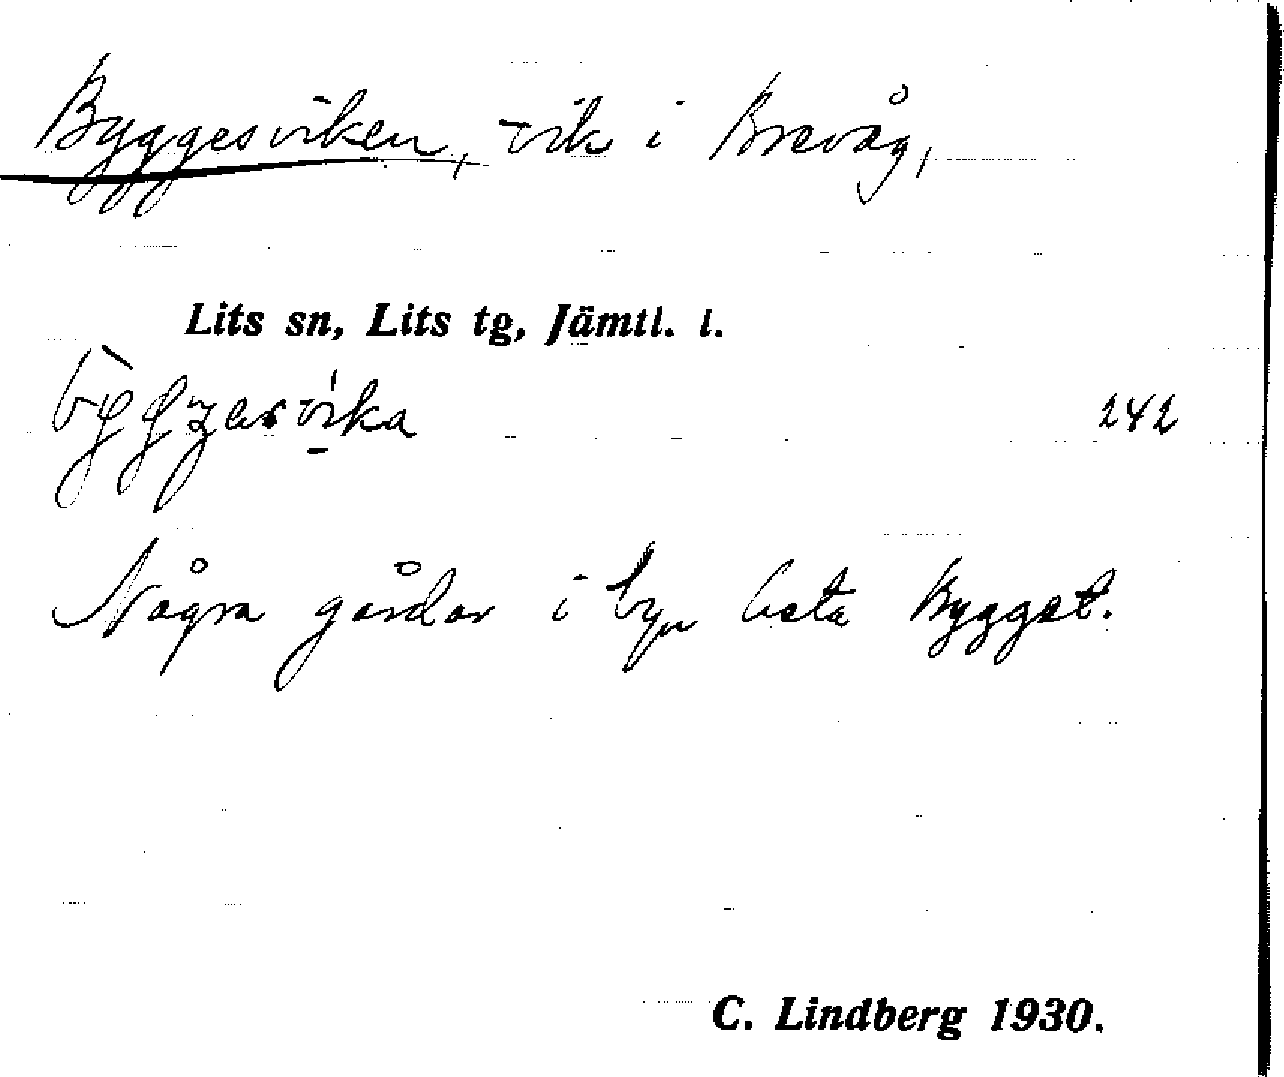 Byggesviken, vik i Brevåg,
Lits sn, Lits tg, Jämtl. l.
242
Några gårdar i byn heta Bygget.
C. Lindberg 1930.